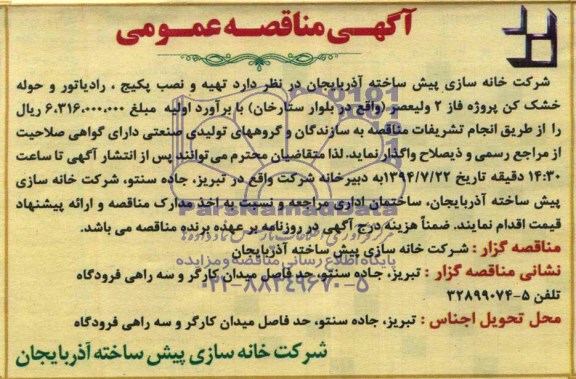 آگهی مناقصه عمومی
شرکت خانه سازی پیش ساخته آذربایجان در نظر دارد تهیه و نصب پکیج ، رادیاتور و حوله
خشک کن پروژه فاز ۲ ولیعصر (واقع در بلوار ستارخان) با برآورد اولیه مبلغ ۶،۳۱۶،۰۰۰،۰۰۰ ریال
را از طریق انجام تشریفات مناقصه به سازندگان و گروههای تولیدی صنعتی دارای گواهی صلاحیت
از مراجع رسمی و ذیصلاح واگذار نماید. لذا متقاضیان محترم می‌توانند پس از انتشار آگهی تا ساعت
۱۴:۳۰ دقیقه تاریخ ۱۳۹۴/۷/۲۲به دبیرخانه شرکت واقع در تبریز، جاده سنتو، شرکت خانه سازی
پیش ساخته آذربایجان، ساختمان اداری مراجعه و نسبت به اخذ مدارک مناقصه و ارائه پیشنهاد
ParsNamadData
قیمت اقدام نمایند. ضمناً هزینه درج آگهی در روزنامه بر عهده برنده مناقصه می باشد.
مناقصه گزار : شرکت خانه سازی پیش ساخته آذربایجان
پایگاه اطلاع رسانی مناقصه و مزایده
نشانی مناقصه گزار : تبریز، جاده سنتو، حد فاصل میدان کارگر و سه راهی فرودگاه
۰۲۱-۸۸۳۴۹۶۷۰-۵
تلفن ۵-۳۲۸۹۹۰۷۴
محل تحویل اجناس : تبریز، جاده سنتو، حد فاصل میدان کارگر و سه راهی فرودگاه
شرکت خانه سازی پیش ساخته آذربایجان